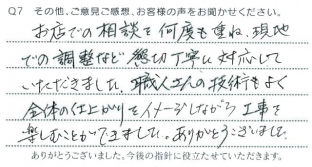 Q7 その他、ご意見ご感想、お客様の声をお聞かせください。
お店での相談を何度も重ね、現地
での調整など懇切丁寧に対応して
いただきました。職人さんの技術もよく
全体の仕上がりをイメージしながら工事を
楽しむことができました。ありがとうございました。
ありがとうございました。今後の指針に役立たせていただきます。